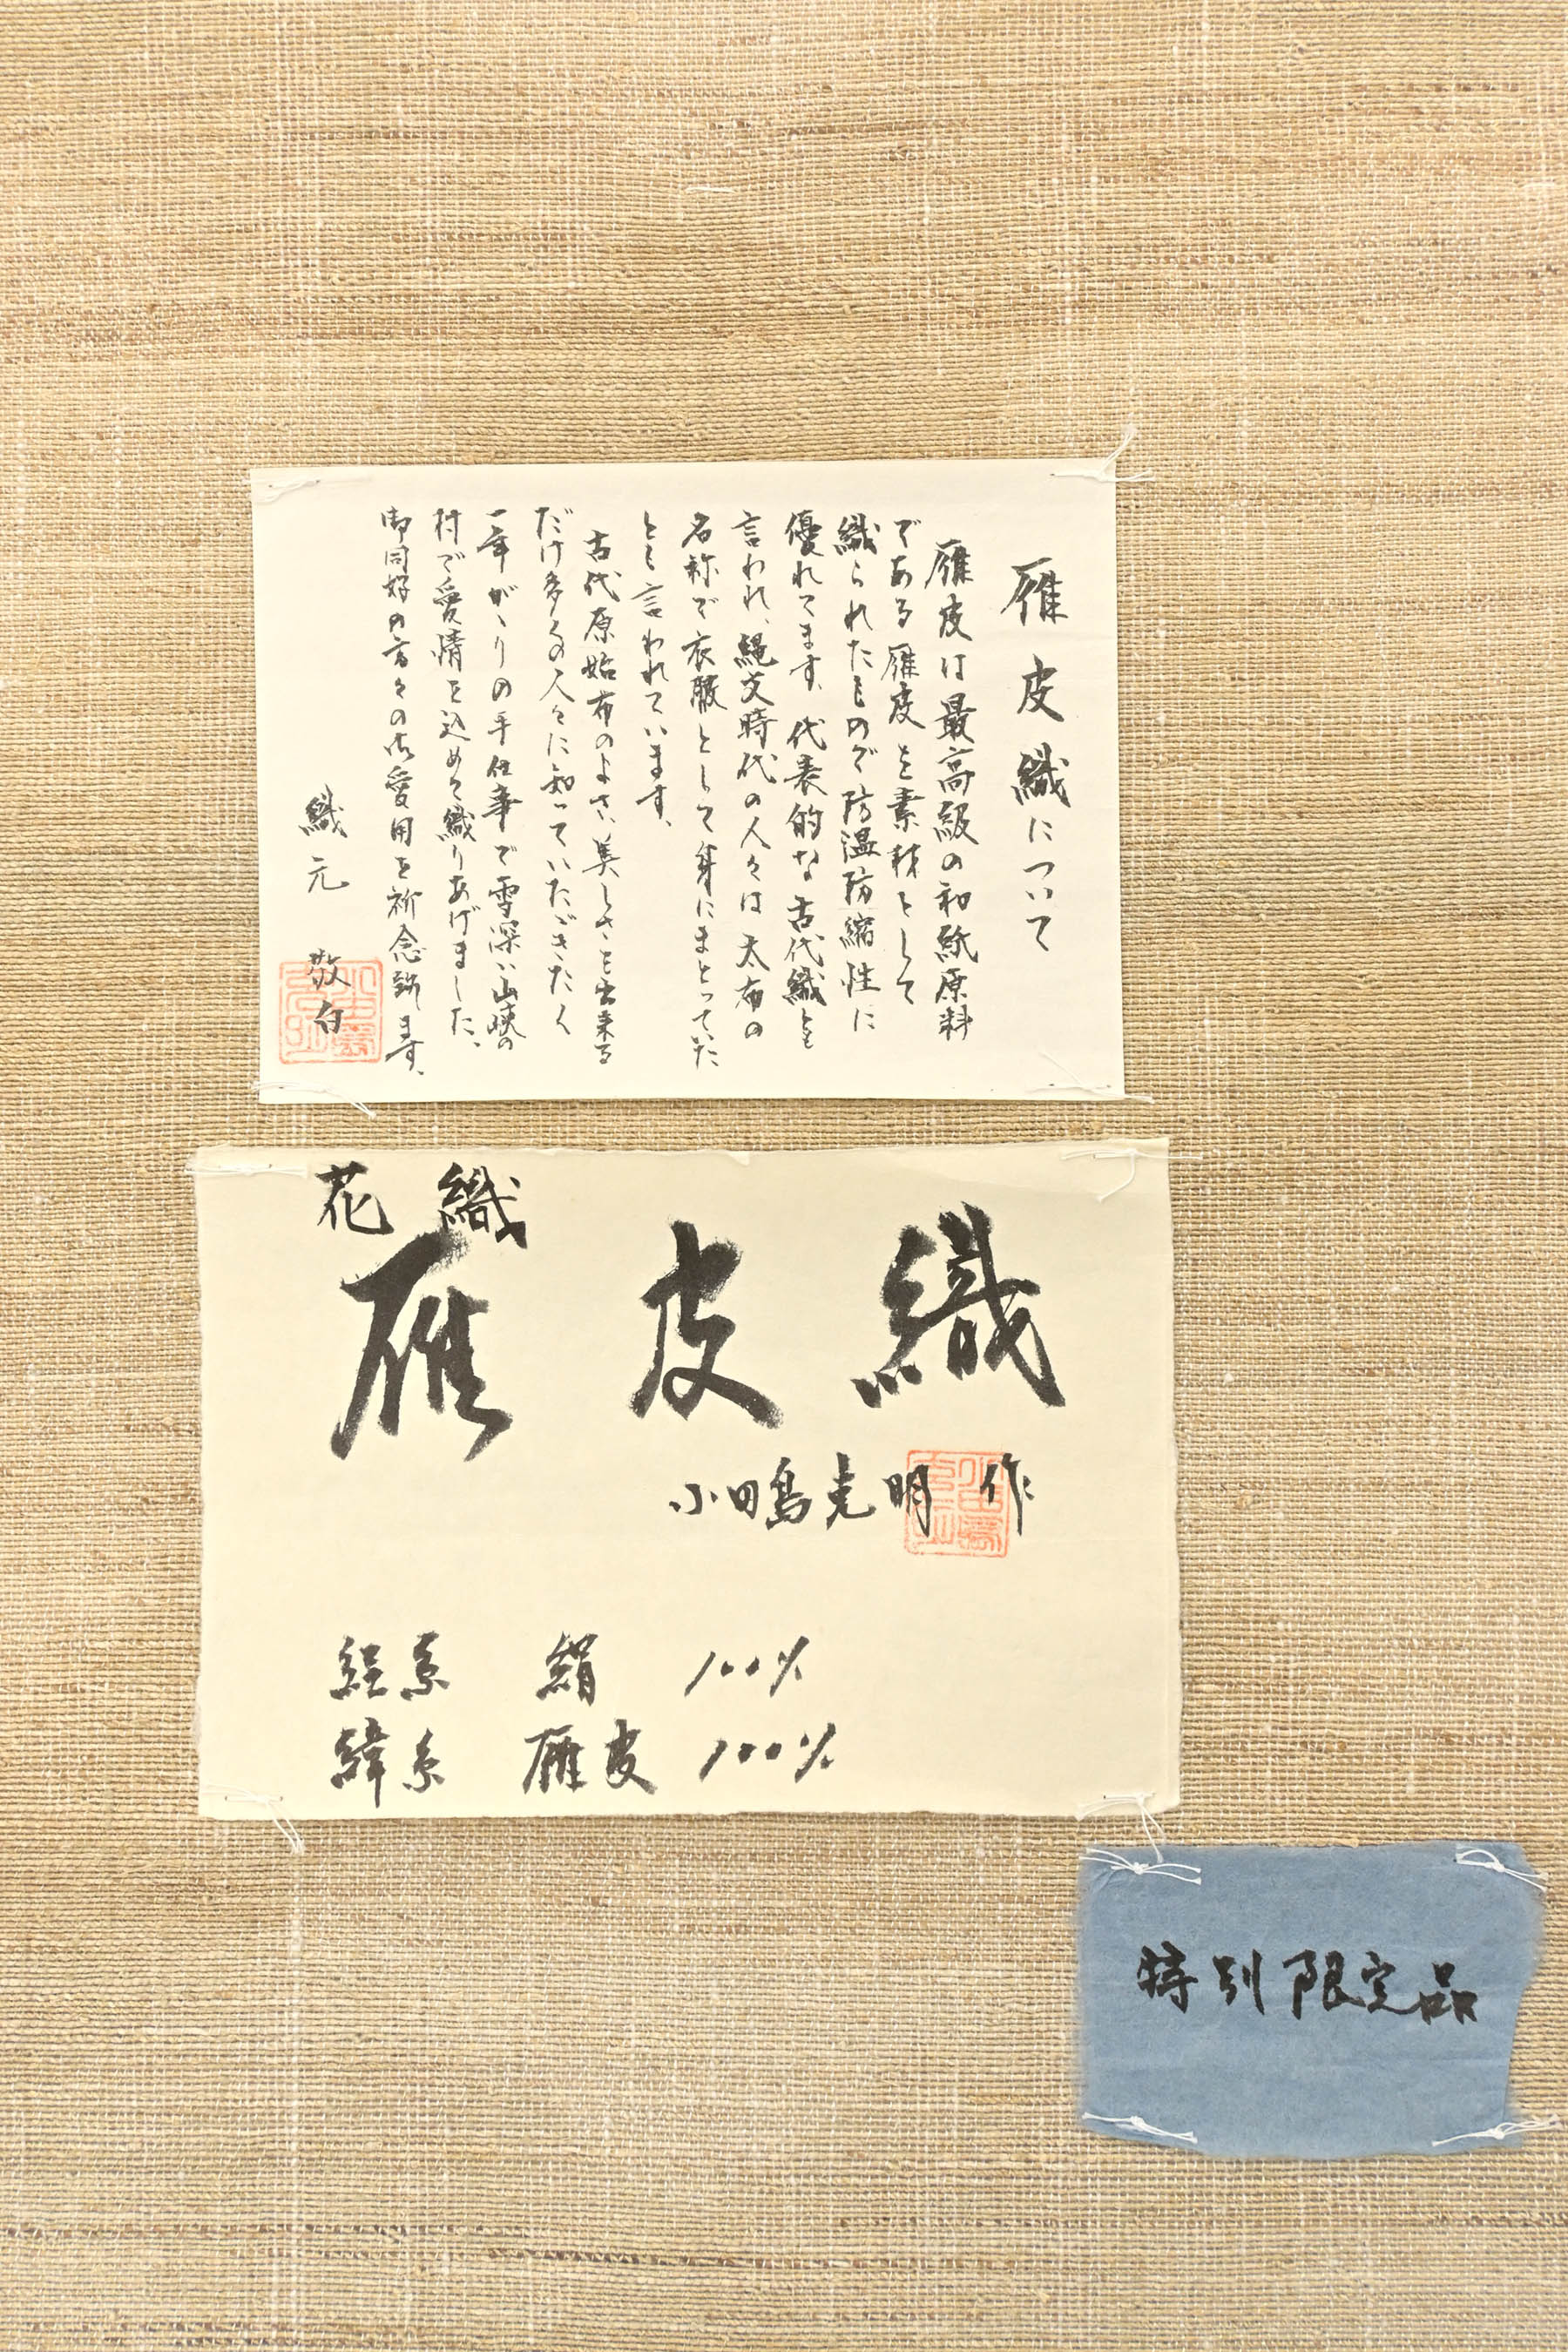 雁皮織について
雁皮は最高級の和紙原料
である雁皮を素材として
織られたもので防温防縮性に
優れてます、代表的な古代織とも
言われ、縄文時代の人々は太布の
名称で衣服として身にまとっていた
とも言われています、
古代原始布のよさ、美しさを出来る
だけ多くの人々に知っていたゞきたく
一年がゝりの手仕事で雪深い山峡の
村で愛情を込めて織りあげました、
御同好の方々の御愛用を祈念致します、
織元 敬白
花織
雁皮織
小田島克明 作
経糸 絹 100%
緯糸 雁皮 100%
特別限定品